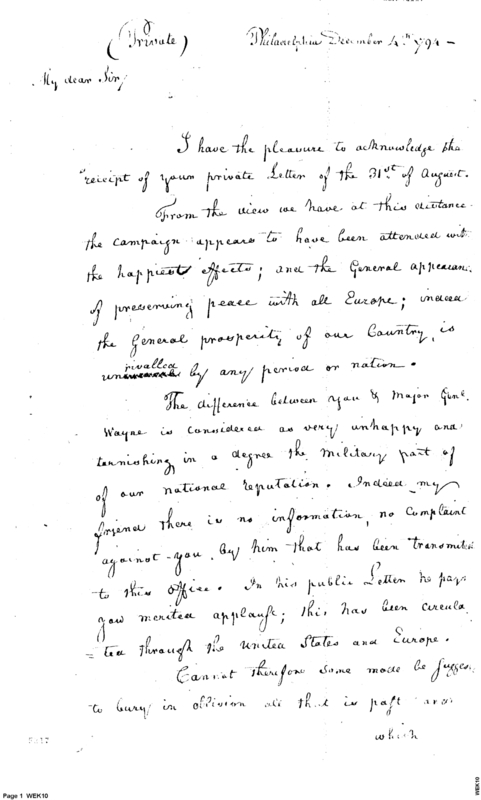 (Private) Philadelphia December 4th 1794 –
My dear Sir,
I have the pleasure to acknowledge the
receipt of your private Letter of the 31st of August.
From the view we have at this distance
the campaign appears to have been attended with
the happiest effects; and the General appearan.
of preserving peace with all Europe; indeed
the General prosperity of our Country, is
rivalled
un by any period or nation.
The difference between you & Major Genl.
Wayne is considered as very unhappy and
tarnishing in a degree the military part of
of our national reputation. Indeed my
friend there is no information, no complaint
against you by him that has been transmitted
to this office. In his public Letter he pays
you merited applause; this has been circula
= ted through the United States and Europe.
Cannot therefore some mode be sugges
to bury in oblivion all that is past and
which
Page 1 WEK10
WEK10